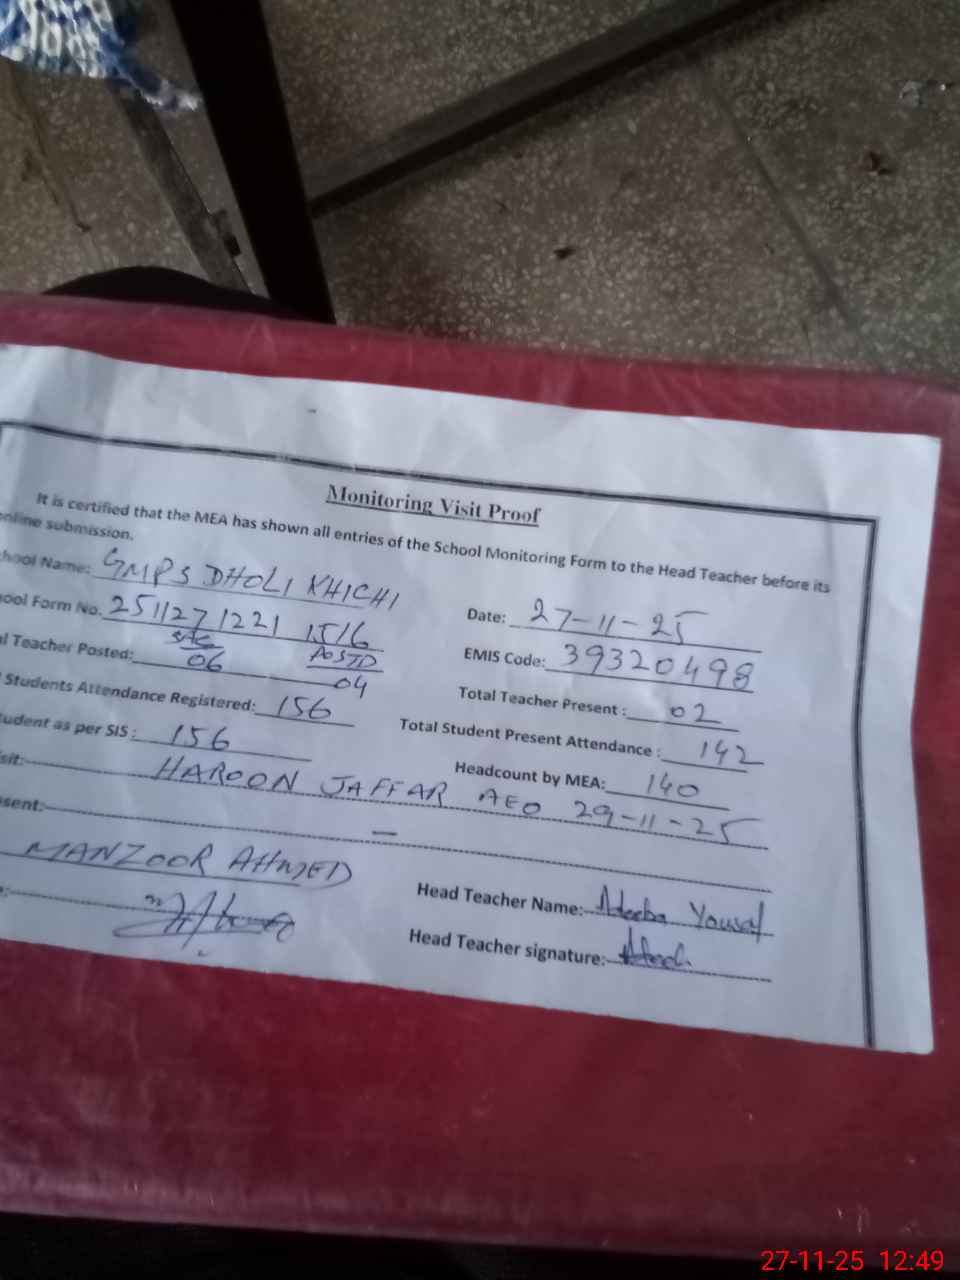 Monitoring Visit Proof
It is certified that the MEA has shown all entries of the School Monitoring Form to the Head Teacher before its
online submission.
hool Name: GMPS DHOLI KHICHI
Date: 27-11-25
ool Form No. 251127 1221 1516
EMIS Code: 39320498
l Teacher Posted: 06 POSTD 04
Total Teacher Present : 02
Students Attendance Registered: 156
Total Student Present Attendance : 142
udent as per SIS : 156
Headcount by MEA: 140
sit: HAROON JAFFAR AEO 29-11-25
sent: —
MANZOOR AHMED
Head Teacher Name: Adeeba Yousaf
Head Teacher signature:
27-11-25 12:49